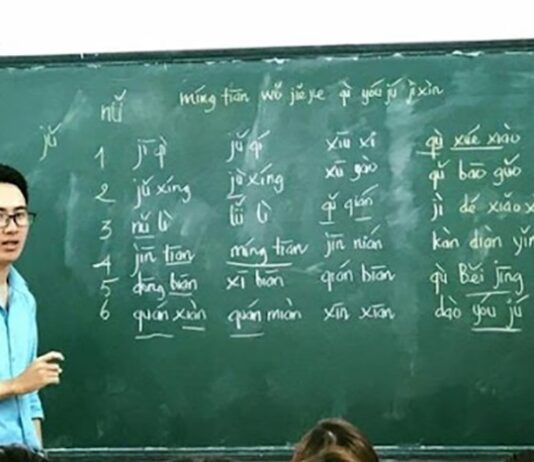 míng tiān wǒ jiějie qù yóu jú jì xìn
nǚ
jǔ
1 jī qì jǔ qí xiū xi qù xué xiào
2 jǔ xíng jù xíng xū yào qǔ bāo guǒ
3 nǔ lì lǚ lì qǔ qián jì dé xiǎo
4 jīn tiān míng tiān jīn nián kàn diàn yǐn
5 dōng biān xī biān qián biān qù Běi jīng
6 quán xiàn quán miàn xīn xiān dào yóu jú